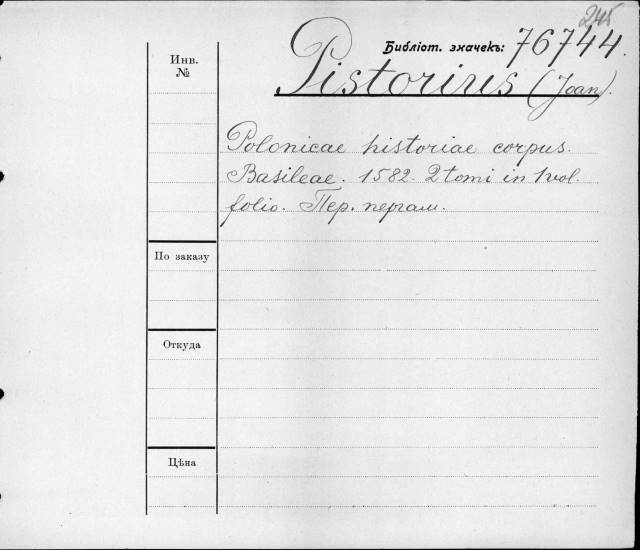 245
Библіот. значекъ: 76744.
Pistorius (Joan).
Инв.
№
Polonicae historiae corpus.
Basileae. 1582. 2 tomi in 1 vol.
folio. Пер. пергам.
По заказу
Откуда
Цѣна